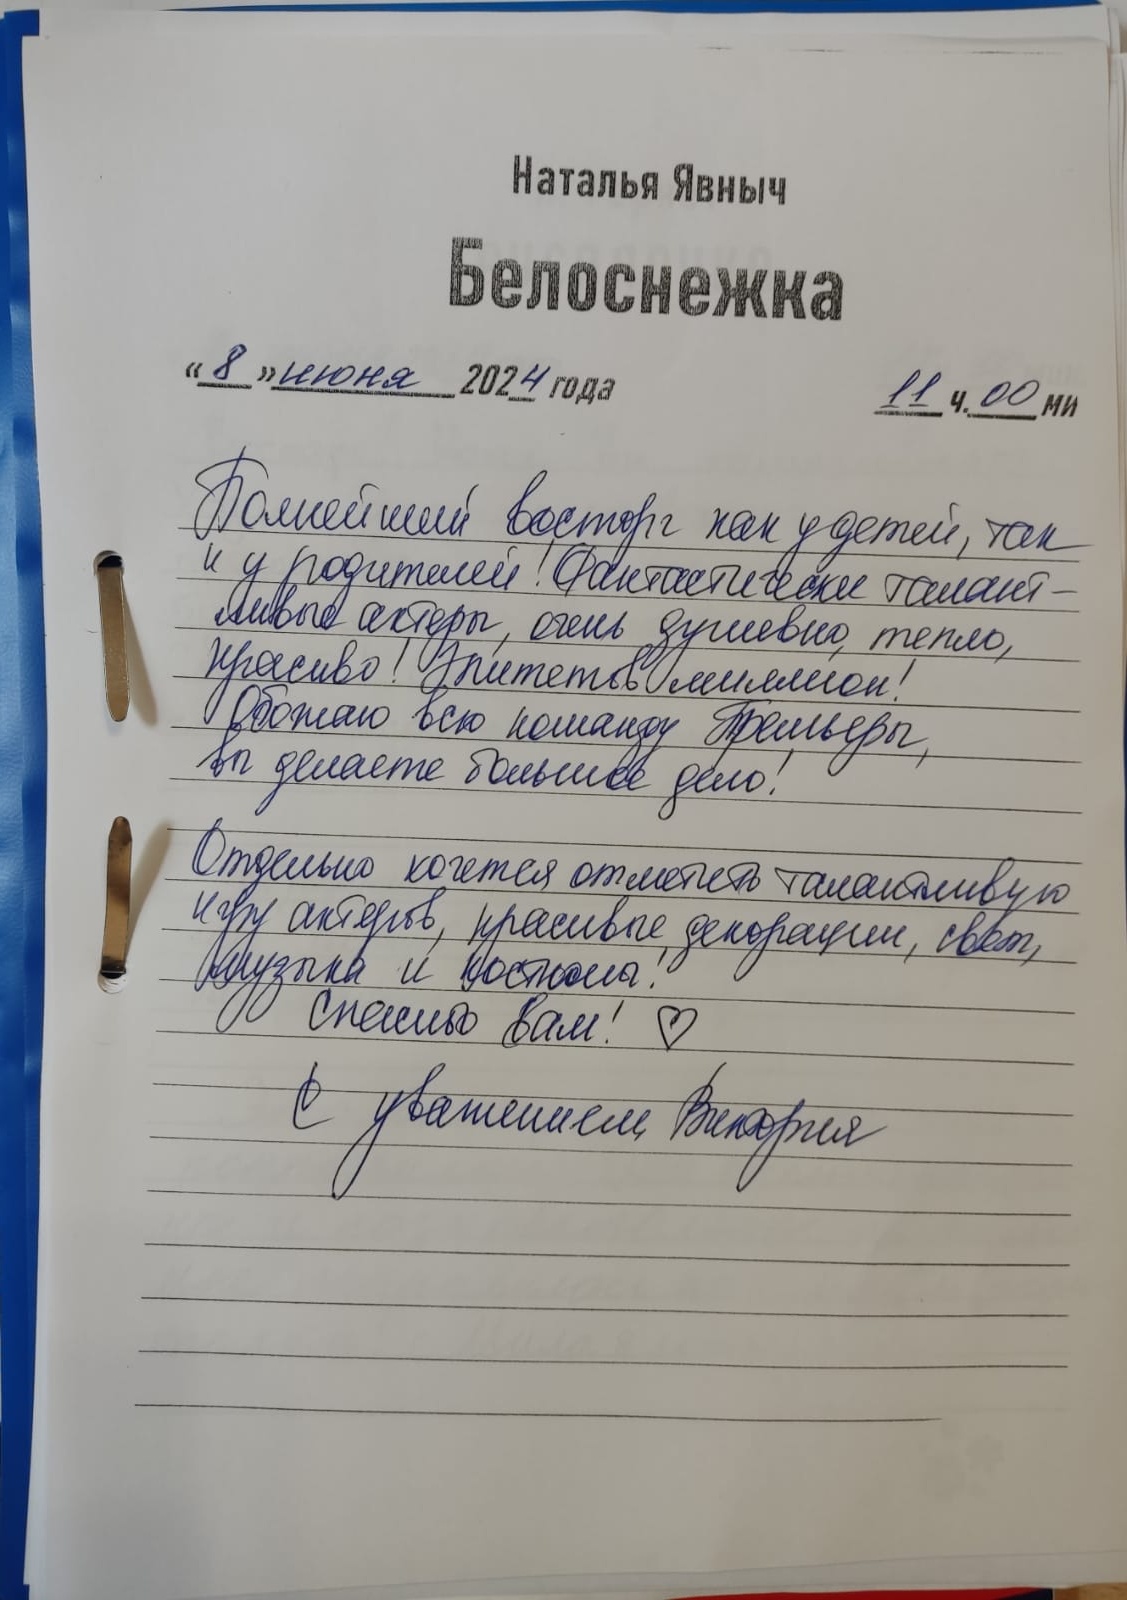 Наталья Явныч
Белоснежка
«8» июня 2024 года 11 ч. 00 ми
Полнейший восторг как у детей, так
и у родителей! Фантастически талант-
ливые актеры, очень душевно, тепло,
красиво! Эпитетов миллион!
Обожаю всю команду Премьеры,
вы делаете большое дело!
Отдельно хочется отметить талантливую
игру актеров, красивые декорации, свет,
музыка и костюмы!
Спасибо Вам! ♡
С уважением, Виктория